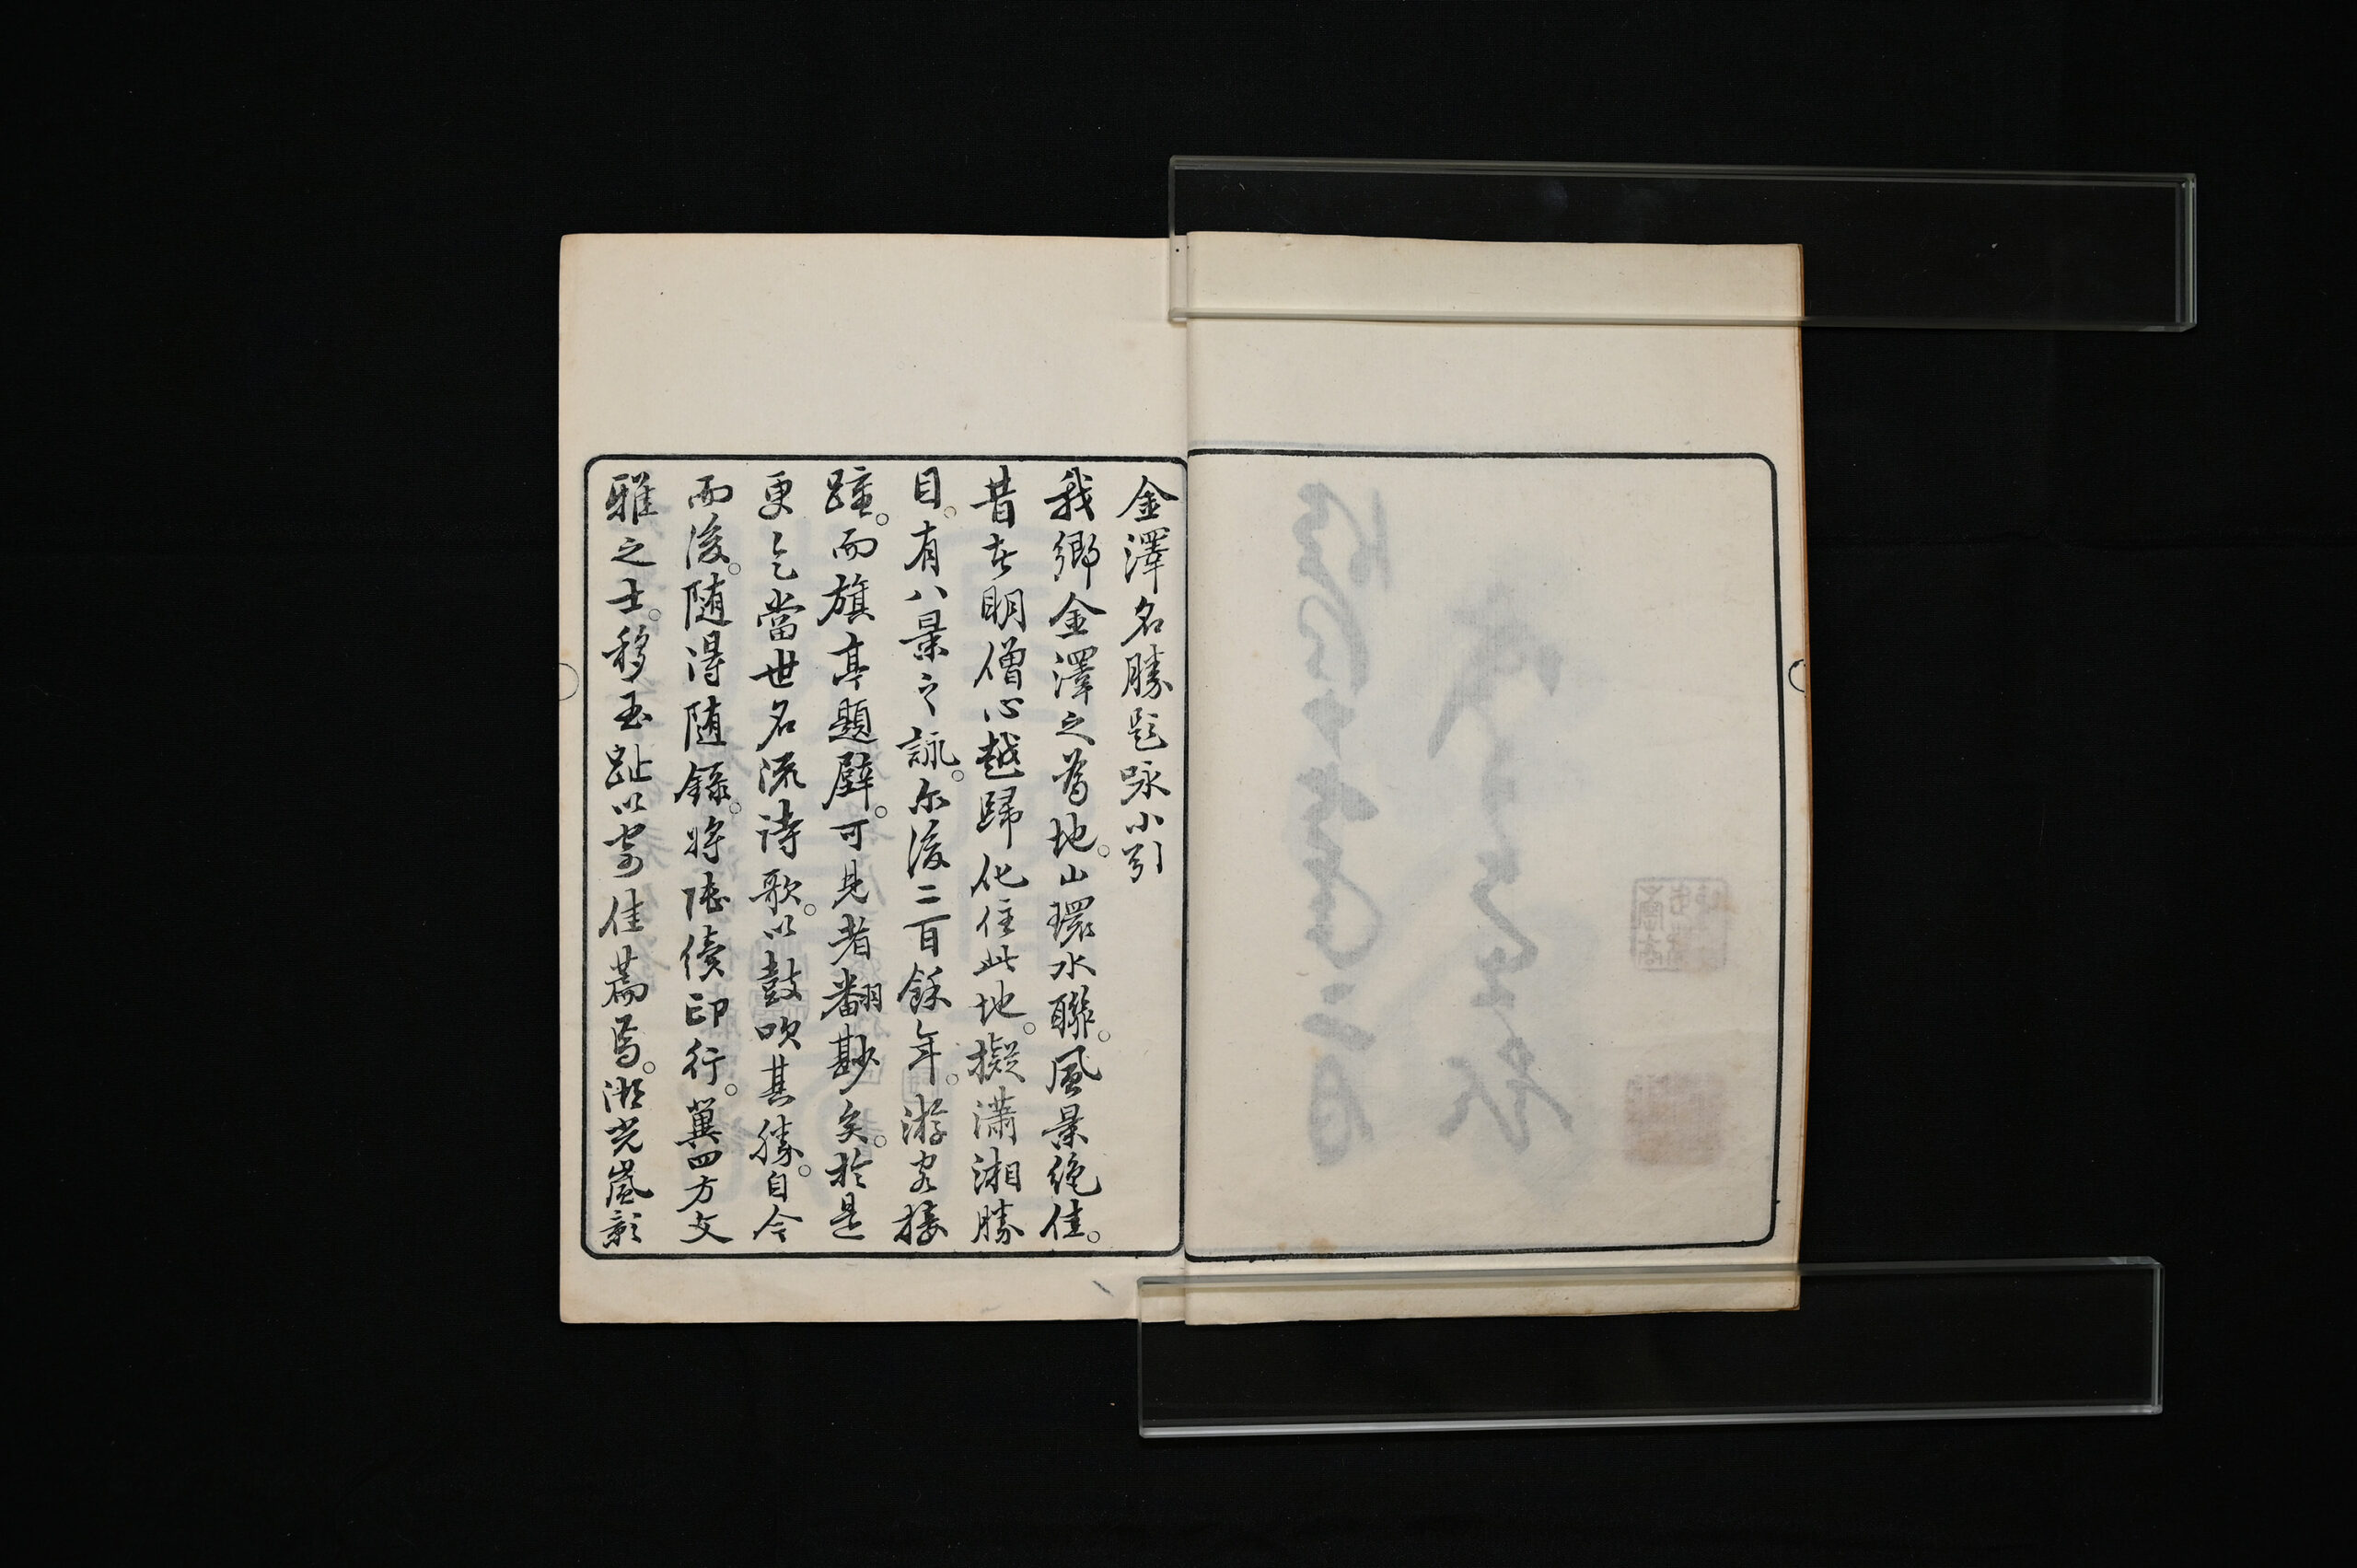 金澤名勝題咏小引
我鄉金澤之為地。山環水聯。風景絶佳。
昔在明僧心越歸化住此地。擬瀟湘勝
目。有八景之詠。尓後二百餘年。游客接
踵。而旗亭題壁。可見者翻尠矣。於是
更乞當世名流詩歌。以鼓吹其勝。自今
而後。随得随錄。將陸續印行。冀四方文
雅之士。移玉趾以寄佳萹焉。湖光嵐影